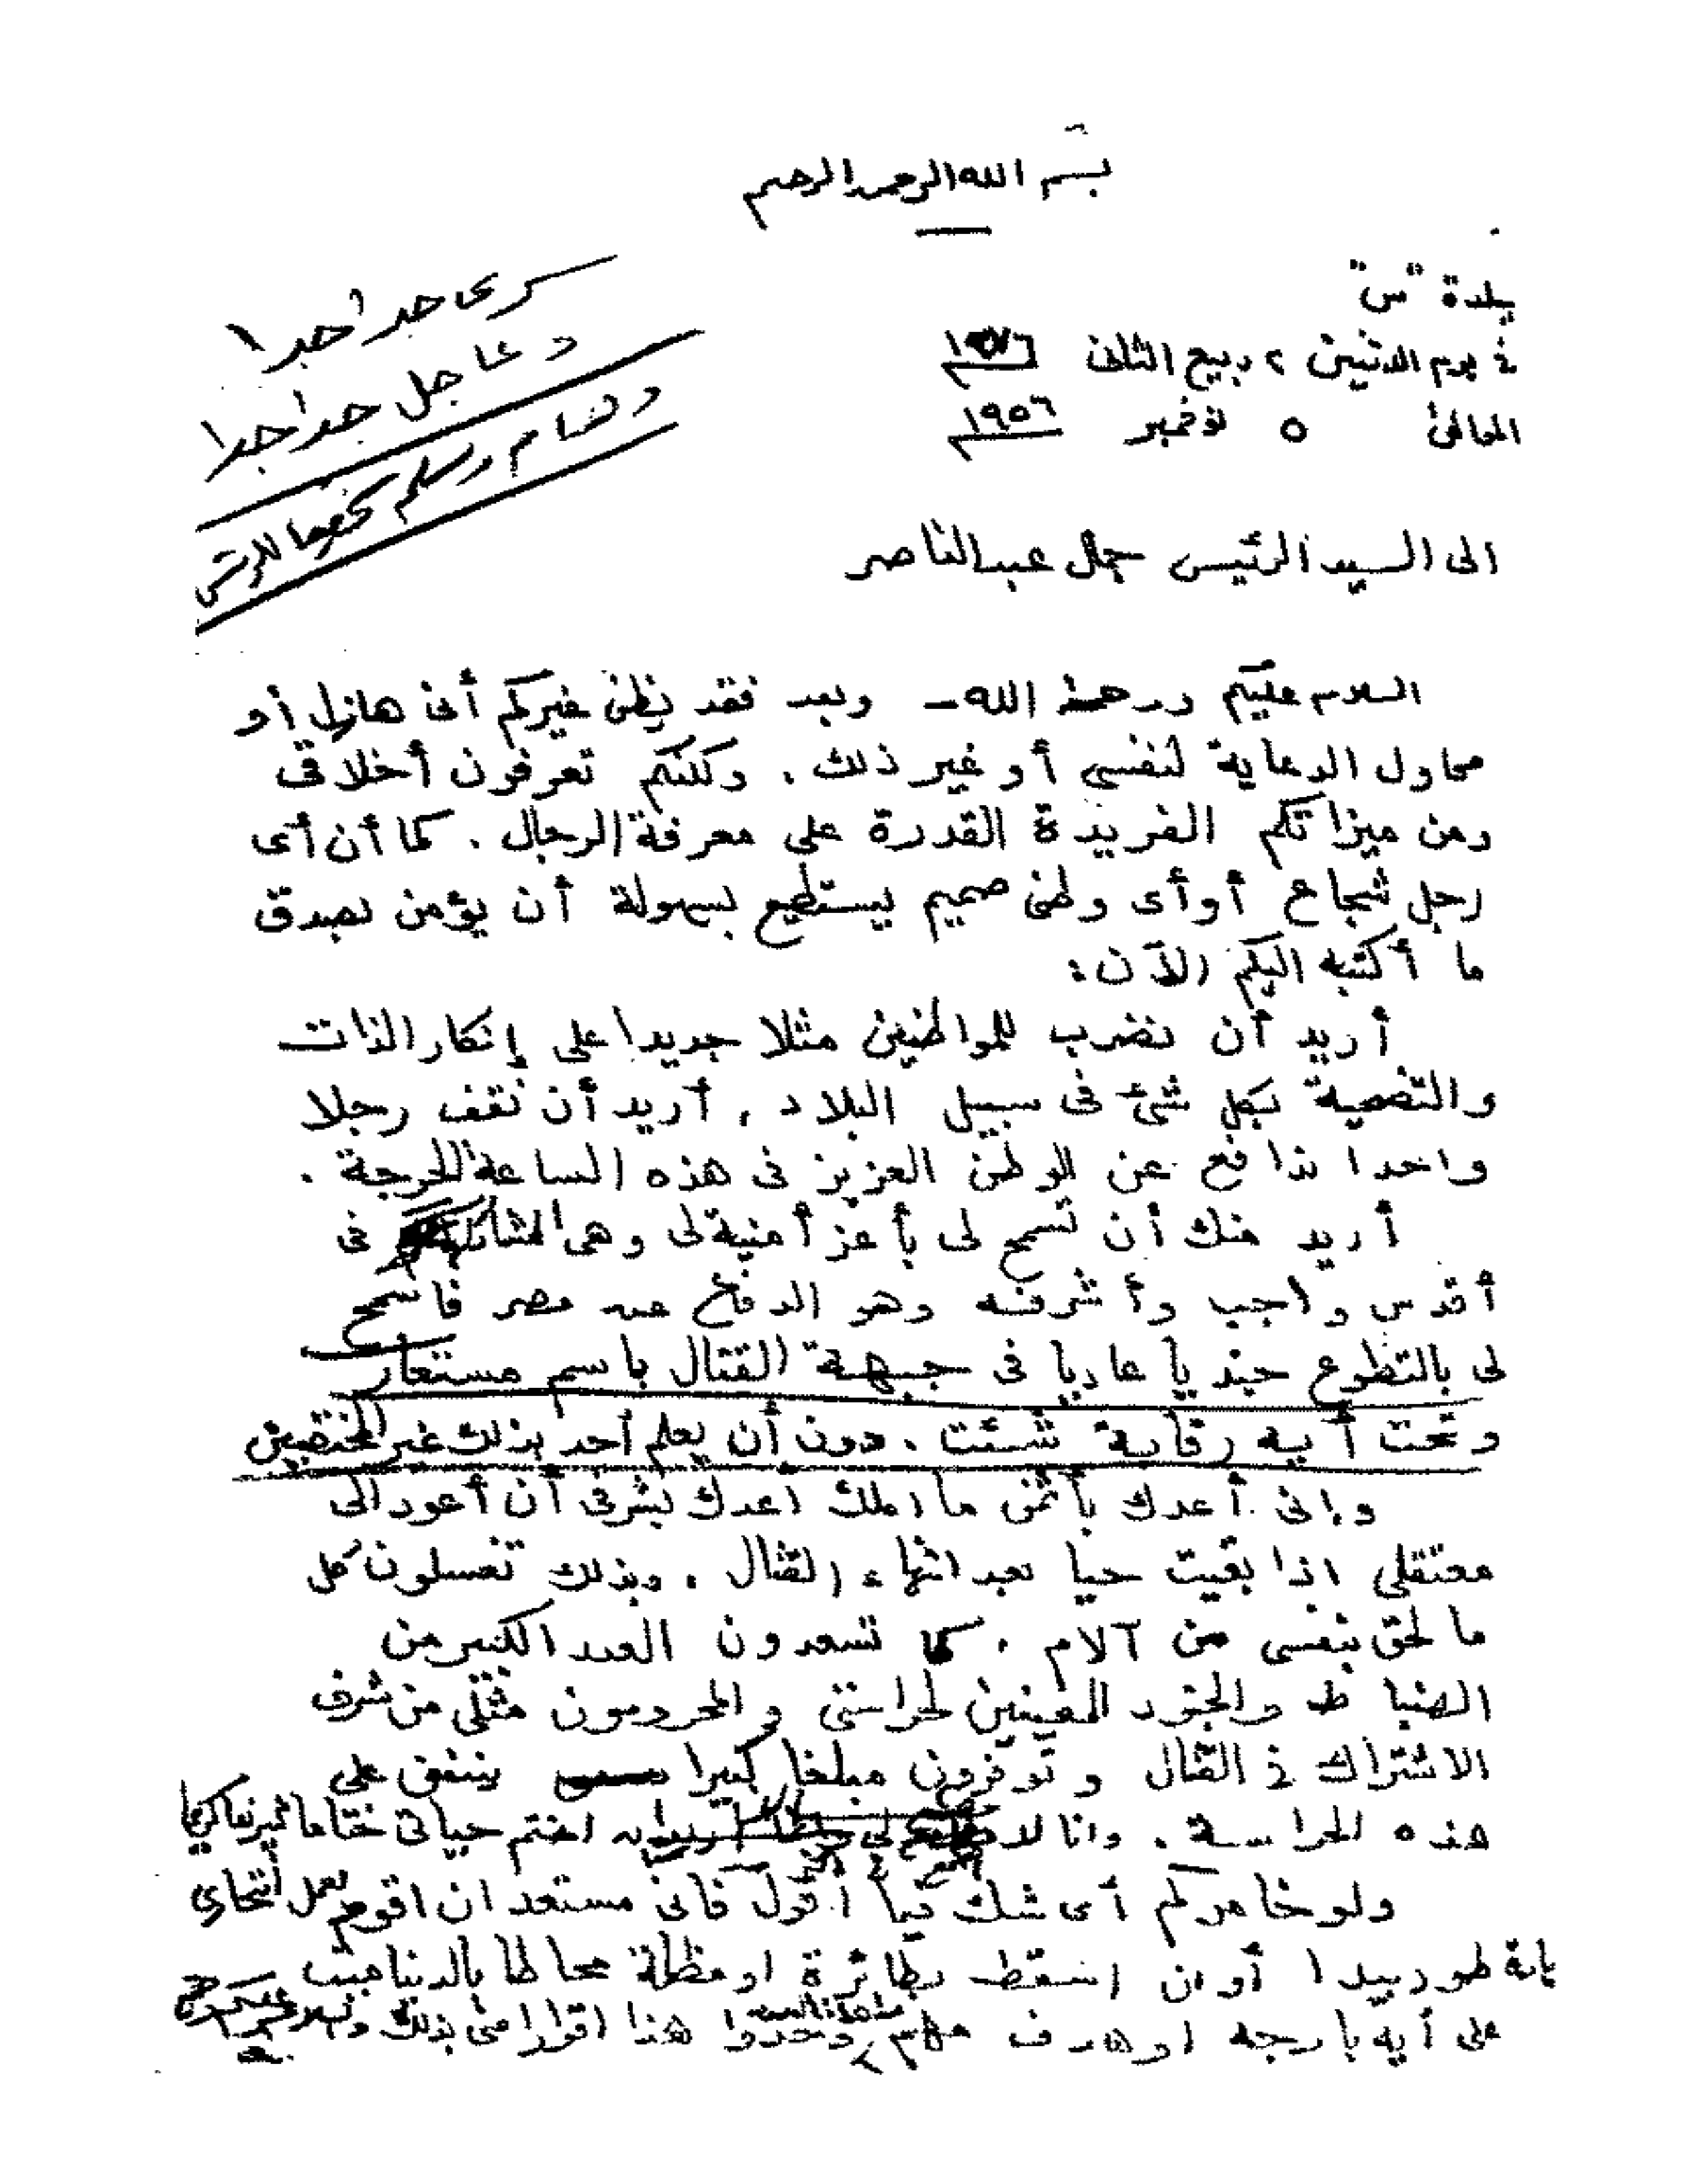 بسم الله الرحمن الرحيم
بلدة "س"
فى يوم الاثنين ٢ ربيع الثانى
الموافق ٥ نوفمبر ١٩٥٦
سرى جدا جدا
وعاجل جدا جدا
وهام ويسلم شخصيا للرئيس
الى السيد الرئيس جمال عبد الناصر
السلام عليكم ورحمة الله - وبعد فقد يظن غيركم أنى هازل أو
محاول الدعاية لنفسى أو غير ذلك . ولكنكم تعرفون أخلاقى
ومن ميزاتكم الفريدة القدرة على معرفة الرجال . كما أن أى
رجل شجاع أو أى وطنى صميم يستطيع بسهولة أن يؤمن بصدق
ما أكتبه اليكم الآن :
أريد أن نضرب للمواطنين مثلا جديدا على إنكار الذات
والتضحية بكل شئ فى سبيل البلاد . أريد أن نقف رجلا
واحدا ندافع عن الوطن العزيز فى هذه الساعة الحرجة .
أريد منك أن تسمح لى بأعز أمنية لى وهى المشاركة فى
أقدس واجب وأشرفه وهو الدفاع عن مصر فاسمح
لى بالتطوع جنديا عاديا فى جبهة القتال باسم مستعار
وتحت أيه رقابة شئت . دون أن يعلم أحد بذلك غير المختصين
وإنى أعدك بأثمن ما املك اعدك بشرفى أن أعود الى
معتقلى اذا بقيت حيا بعد انتهاء القتال . وبذلك تغسلون كل
ما لحق بنفسى من آلام . كما تسعدون العدد الكبير من
الضباط والجنود المعينين لحراستى والمحرومون مثلى من شرف
الاشتراك فى القتال وتوفرون مبلغا كبيرا ينفق على
هذه الحراسة . وانا اختم حياتى ختاما شريفا كريما
ولو خامركم أى شك فيما أقول فانى مستعد ان اقوم بعمل انتحارى
بأن اسقط بطائرة او مظلة محاطا بالديناميت
على أيه بارجه او هدف هام وخذوا هذا اقرارا منى بذلك